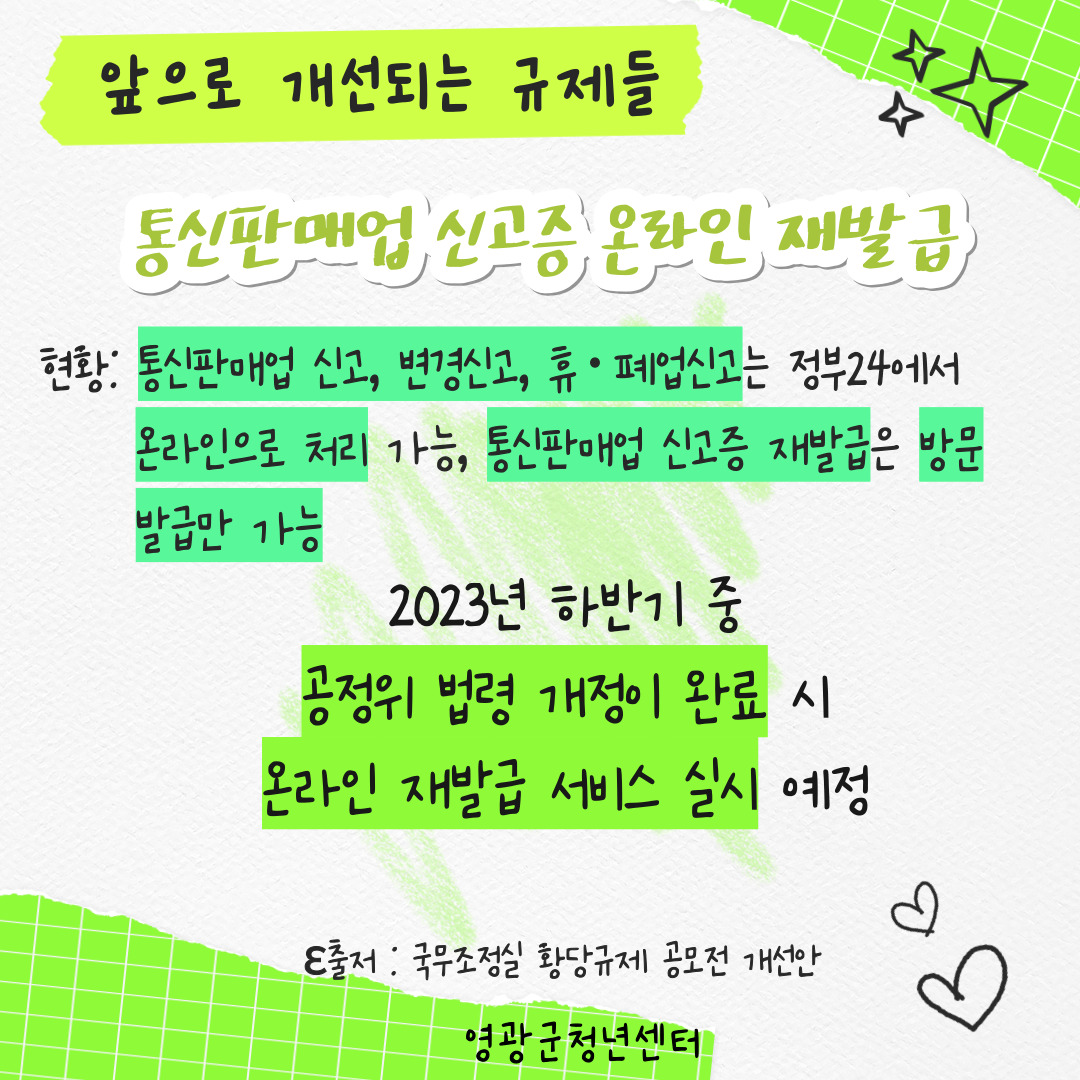 앞으로 개선되는 규제들
통신판매업 신고증 온라인 재발급
현황: 통신판매업 신고, 변경신고, 휴·폐업신고는 정부24에서
온라인으로 처리 가능, 통신판매업 신고증 재발급은 방문
발급만 가능
2023년 하반기 중
공정위 법령 개정이 완료 시
온라인 재발급 서비스 실시 예정
ε출저 : 국무조정실 황당규제 공모전 개선안
영광군청년센터